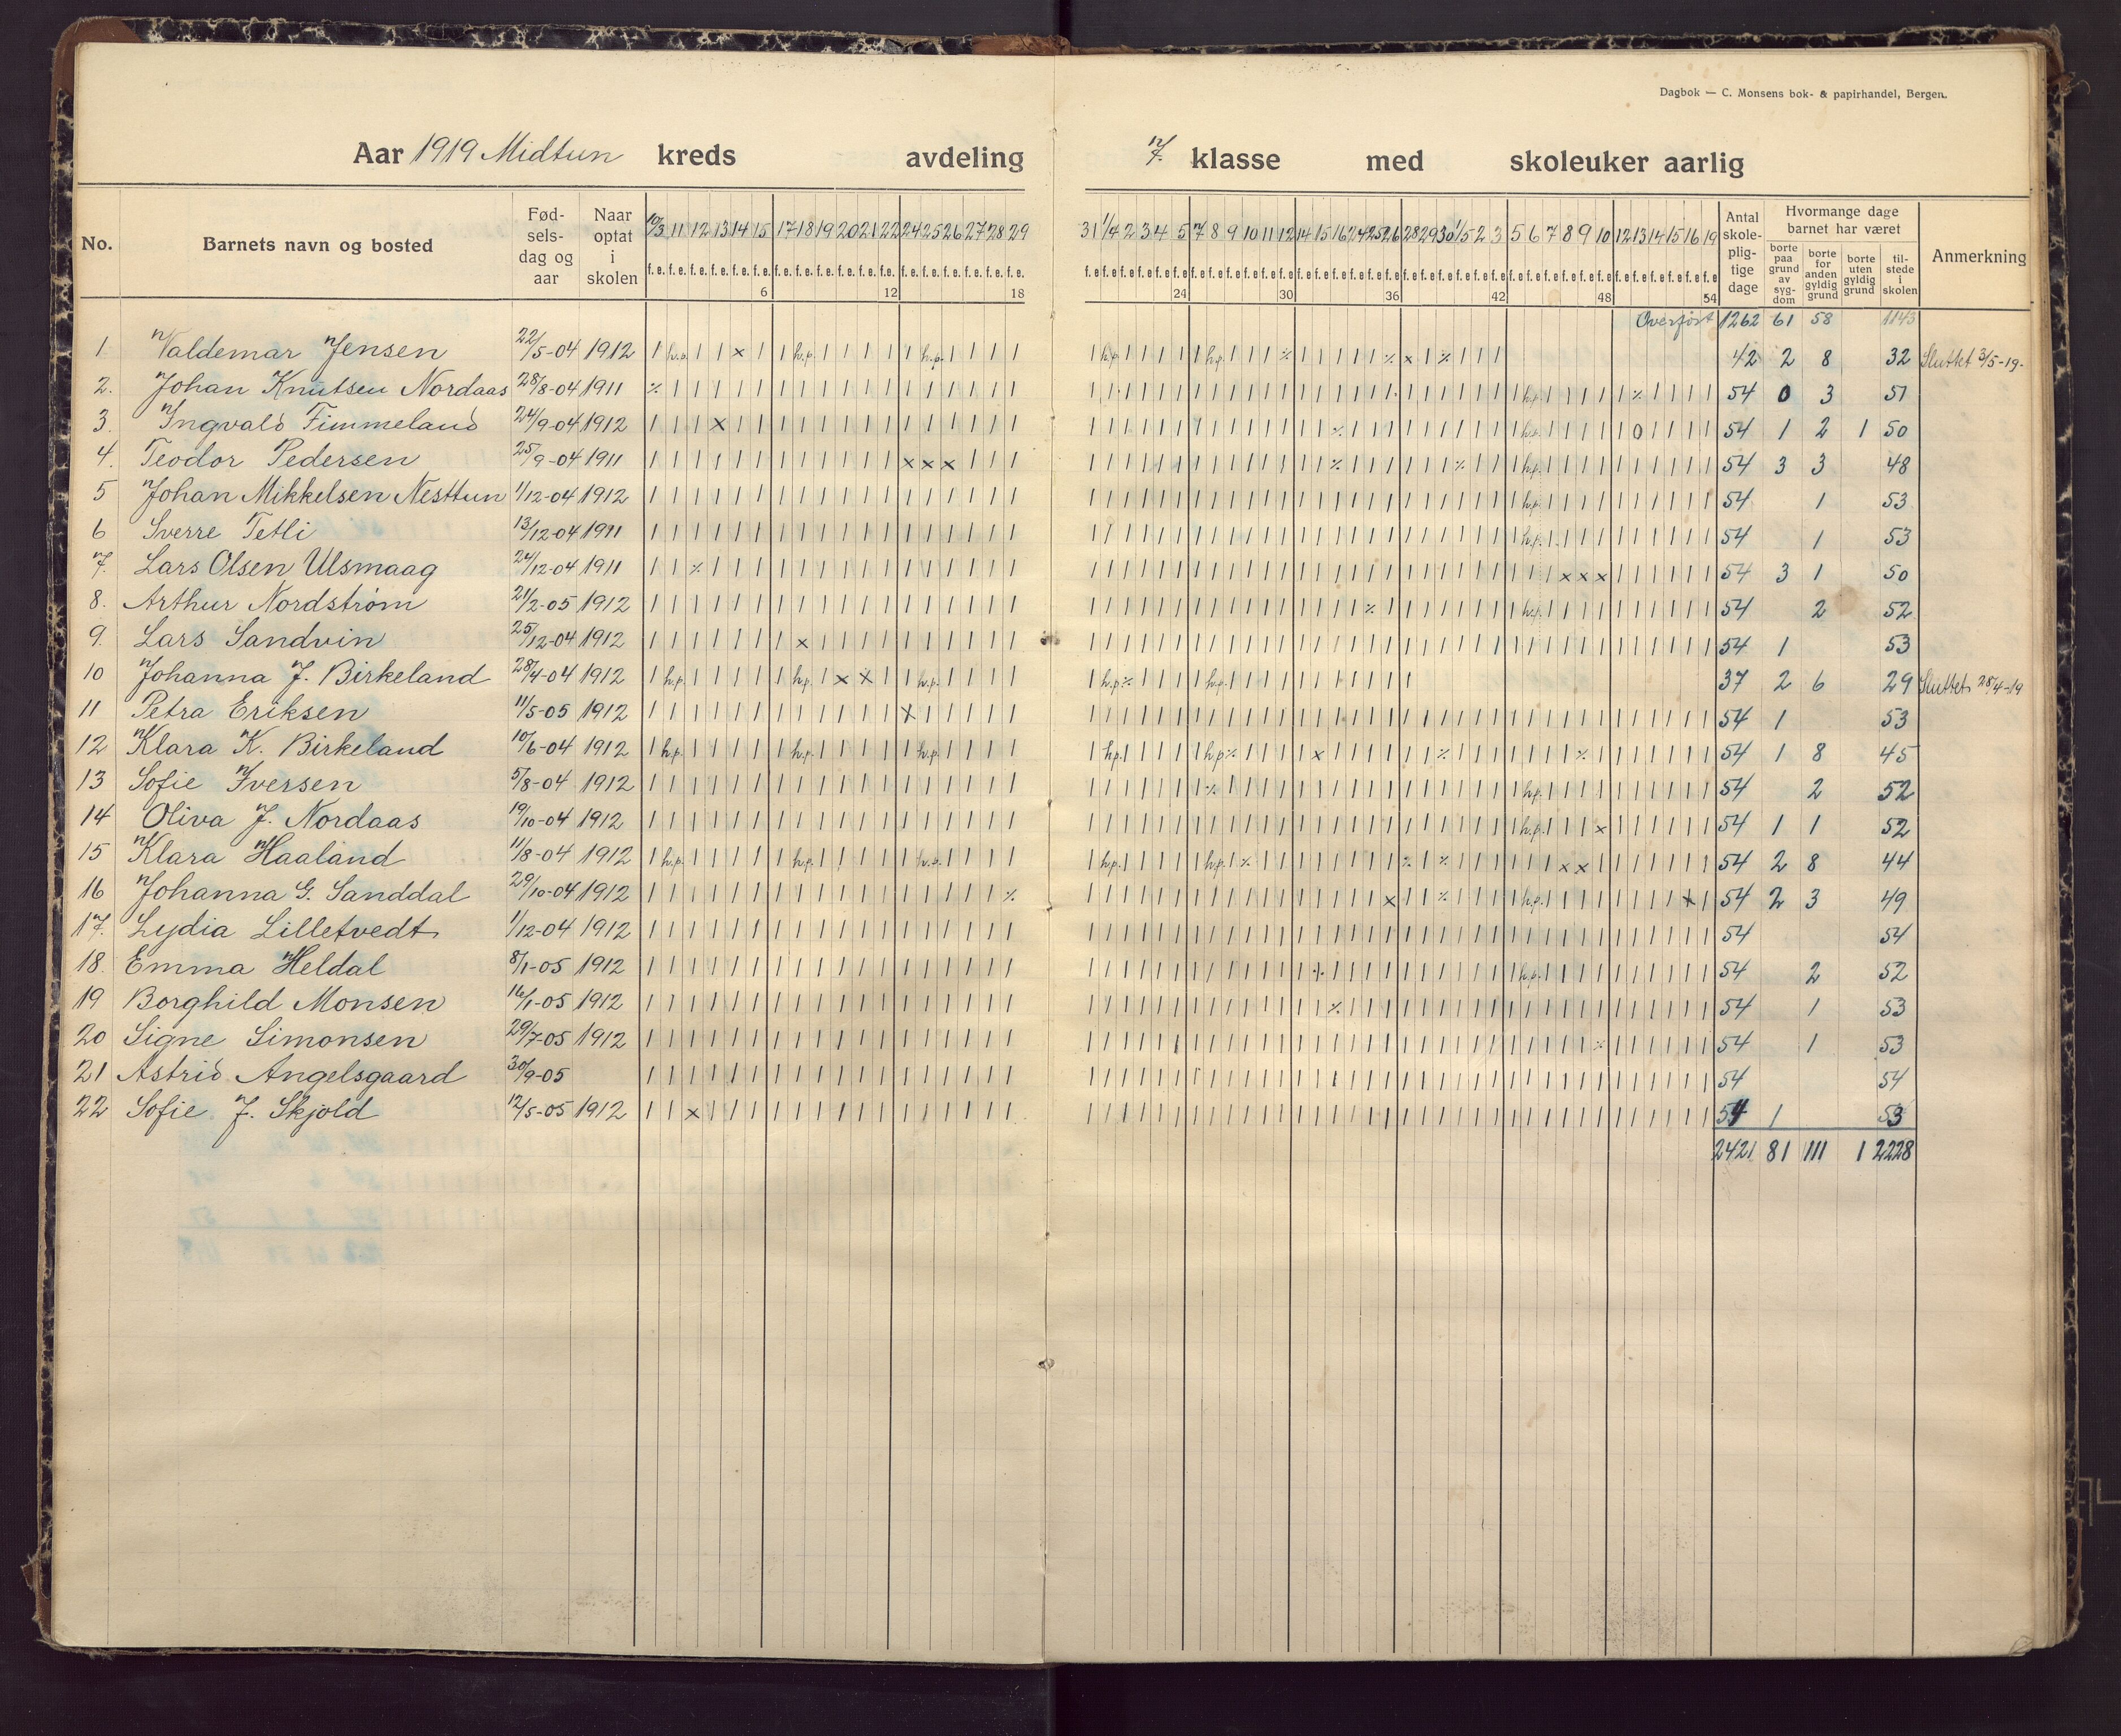 Dagbok — C. Monsens bok- & papirhandel, Bergen.
Aar 1919 Midtun kreds avdeling 7. klasse med skoleuker aarlig
No. Barnets navn og bosted Fød-sels-dag og aar Naar optat i skolen 10/3 11 12 13 14 15 17 18 19 20 21 22 24 25 26 27 28 29 31 1/4 2 3 4 5 7 8 9 10 11 12 14 15 16 24 25 26 28 29 30 1/5 2 3 5 6 7 8 9 10 12 13 14 15 16 19 Antal skole-plig-tige dage Hvormange dage barnet har været borte paa grund av syg-dom borte for anden gyldig grund borte uten gyldig grund til-stede i skolen Anmerkning
6 12 18 24 30 36 42 48 54
Overført 1262 61 58 1143
1 Valdemar Jensen 22/5-04 1912 42 2 8 32 Sluttet 3/5-19.
2. Johan Knutsen Nordaas 28/8-04 1911 54 0 3 51
3. Ingvald Fimmeland 24/9-04 1912 54 1 2 1 50
4. Teodor Pedersen 25/9-04 1911 54 3 3 48
5 Johan Mikkelsen Nesttun 1/12-04 1912 54 1 53
6 Sverre Tetli 13/12-04 1911 54 1 53
7. Lars Olsen Ulsmaag 24/12-04 1911 54 3 1 50
8. Arthur Nordstrøm 21/2-05 1912 54 2 52
9. Lars Sandvin 25/12-04 1912 54 1 53
10 Johanna J. Birkeland 28/4-04 1912 37 2 6 29 Sluttet 28/4-19
11 Petra Eriksen 11/5-05 1912 54 1 53
12 Klara K. Birkeland 10/6-04 1912 54 1 8 45
13 Sofie Iversen 5/8-04 1912 54 2 52
14 Oliva J. Nordaas 19/10-04 1912 54 1 1 52
15 Klara Haaland 11/8-04 1912 54 2 8 44
16 Johanna G. Sanddal 29/10-04 1912 54 2 3 49
17. Lydia Lilletvedt 1/12-04 1912 54 54
18. Emma Heldal 8/1-05 1912 54 2 52
19 Borghild Monsen 16/1-05 1912 54 1 53
20 Signe Simonsen 29/7-05 1912 54 1 53
21 Astrid Angelsgaard 30/9-05 54 54
22 Sofie J. Skjold 12/5-05 1912 54 1 53
2421 81 111 1 2228